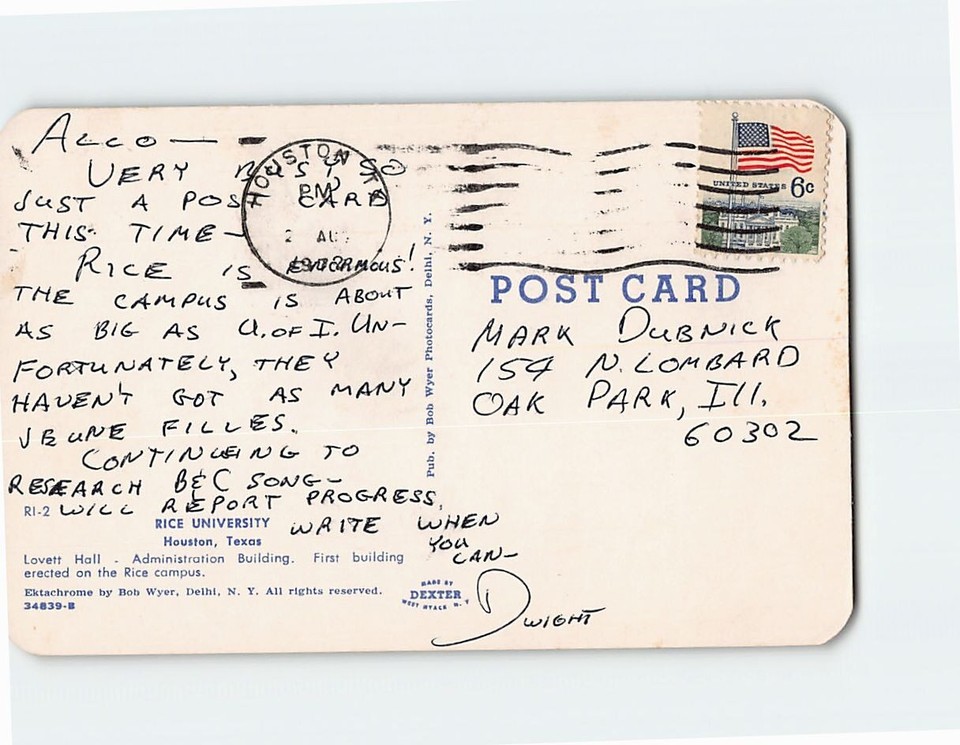 ALLO —
VERY BUSY SO
JUST A POST CARD
THIS TIME —
RICE IS ENORMOUS!
THE CAMPUS IS ABOUT
AS BIG AS U. OF I. UN-
FORTUNATELY, THEY
HAVEN'T GOT AS MANY
JEUNE FILLES.
CONTINUEING TO
RESEARCH B&C SONG —
WILL REPORT PROGRESS.
WRITE WHEN
YOU
CAN —
DWIGHT
RI-2
RICE UNIVERSITY
Houston, Texas
Lovett Hall - Administration Building. First building
erected on the Rice campus.
Ektachrome by Bob Wyer, Delhi, N. Y. All rights reserved.
34839-B
Pub. by Bob Wyer Photocards, Delhi, N. Y.
MADE BY
DEXTER
WEST NYACK N. Y.
HOUSTON
PM
2 AUG
UNITED STATES 6c
POST CARD
MARK DUBNICK
154 N. LOMBARD
OAK PARK, Ill.
60302